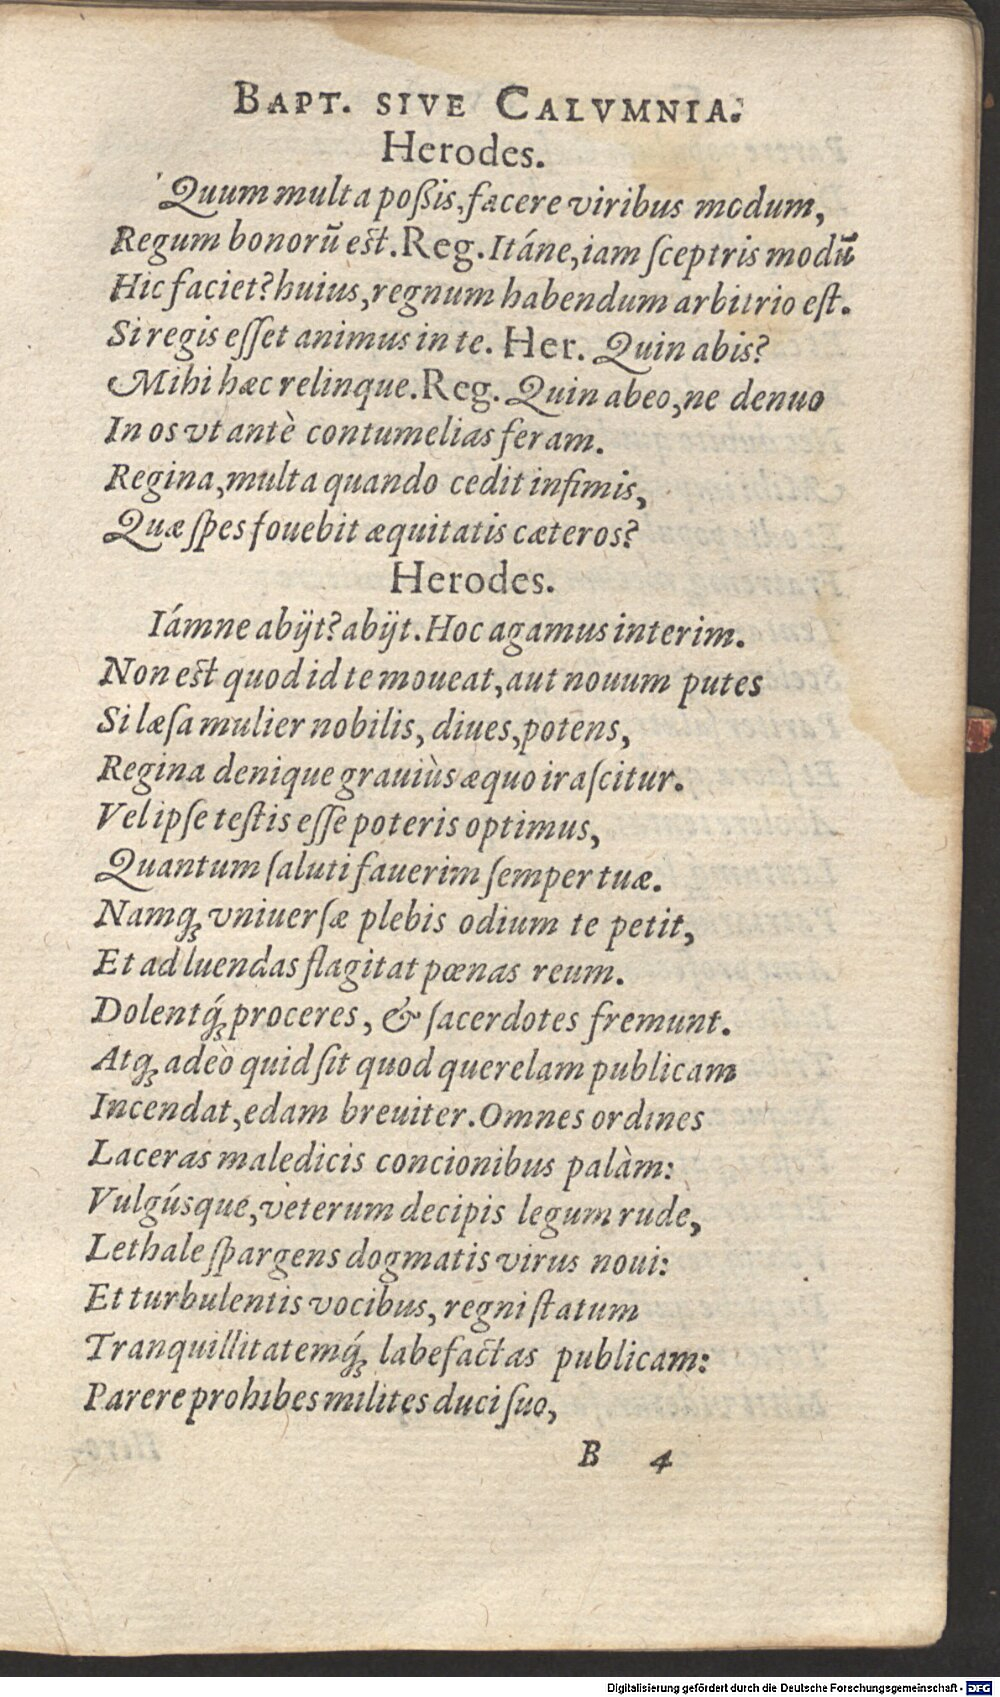 BAPT. SIVE CALVMNIA.
Herodes.
Quum multa poßis, facere viribus modum,
Regum bonorũ est. Reg. Itáne, iam ſceptris modũ
Hic faciet? huius, regnum habendum arbitrio eſt.
Si regis eſſet animus in te. Her. Quin abis?
Mihi hæc relinque. Reg. Quin abeo, ne denuo
In os vt antè contumelias feram.
Regina, multa quando cedit infimis,
Quæ ſpes fouebit æquitatis cæteros?
Herodes.
Iámne abijt? abijt. Hoc agamus interim.
Non est quod id te moueat, aut nouum putes
Si læſa mulier nobilis, diues, potens,
Regina denique grauiùs æquo iraſcitur.
Vel ipſe teſtis eſſe poteris optimus,
Quantum ſaluti fauerim ſemper tuæ.
Namq; vniuerſæ plebis odium te petit,
Et ad luendas flagitat pœnas reum.
Dolentq́; proceres, & ſacerdotes fremunt.
Atq; adeò quid ſit quod querelam publicam
Incendat, edam breuiter. Omnes ordines
Laceras maledicis concionibus palàm:
Vulgúsque, veterum decipis legum rude,
Lethale ſpargens dogmatis virus noui:
Et turbulentis vocibus, regni ſtatum
Tranquillitatemq́; labefactas publicam:
Parere prohibes milites duci ſuo,
B 4
Digitalisierung gefördert durch die Deutsche Forschungsgemeinschaft - DFG